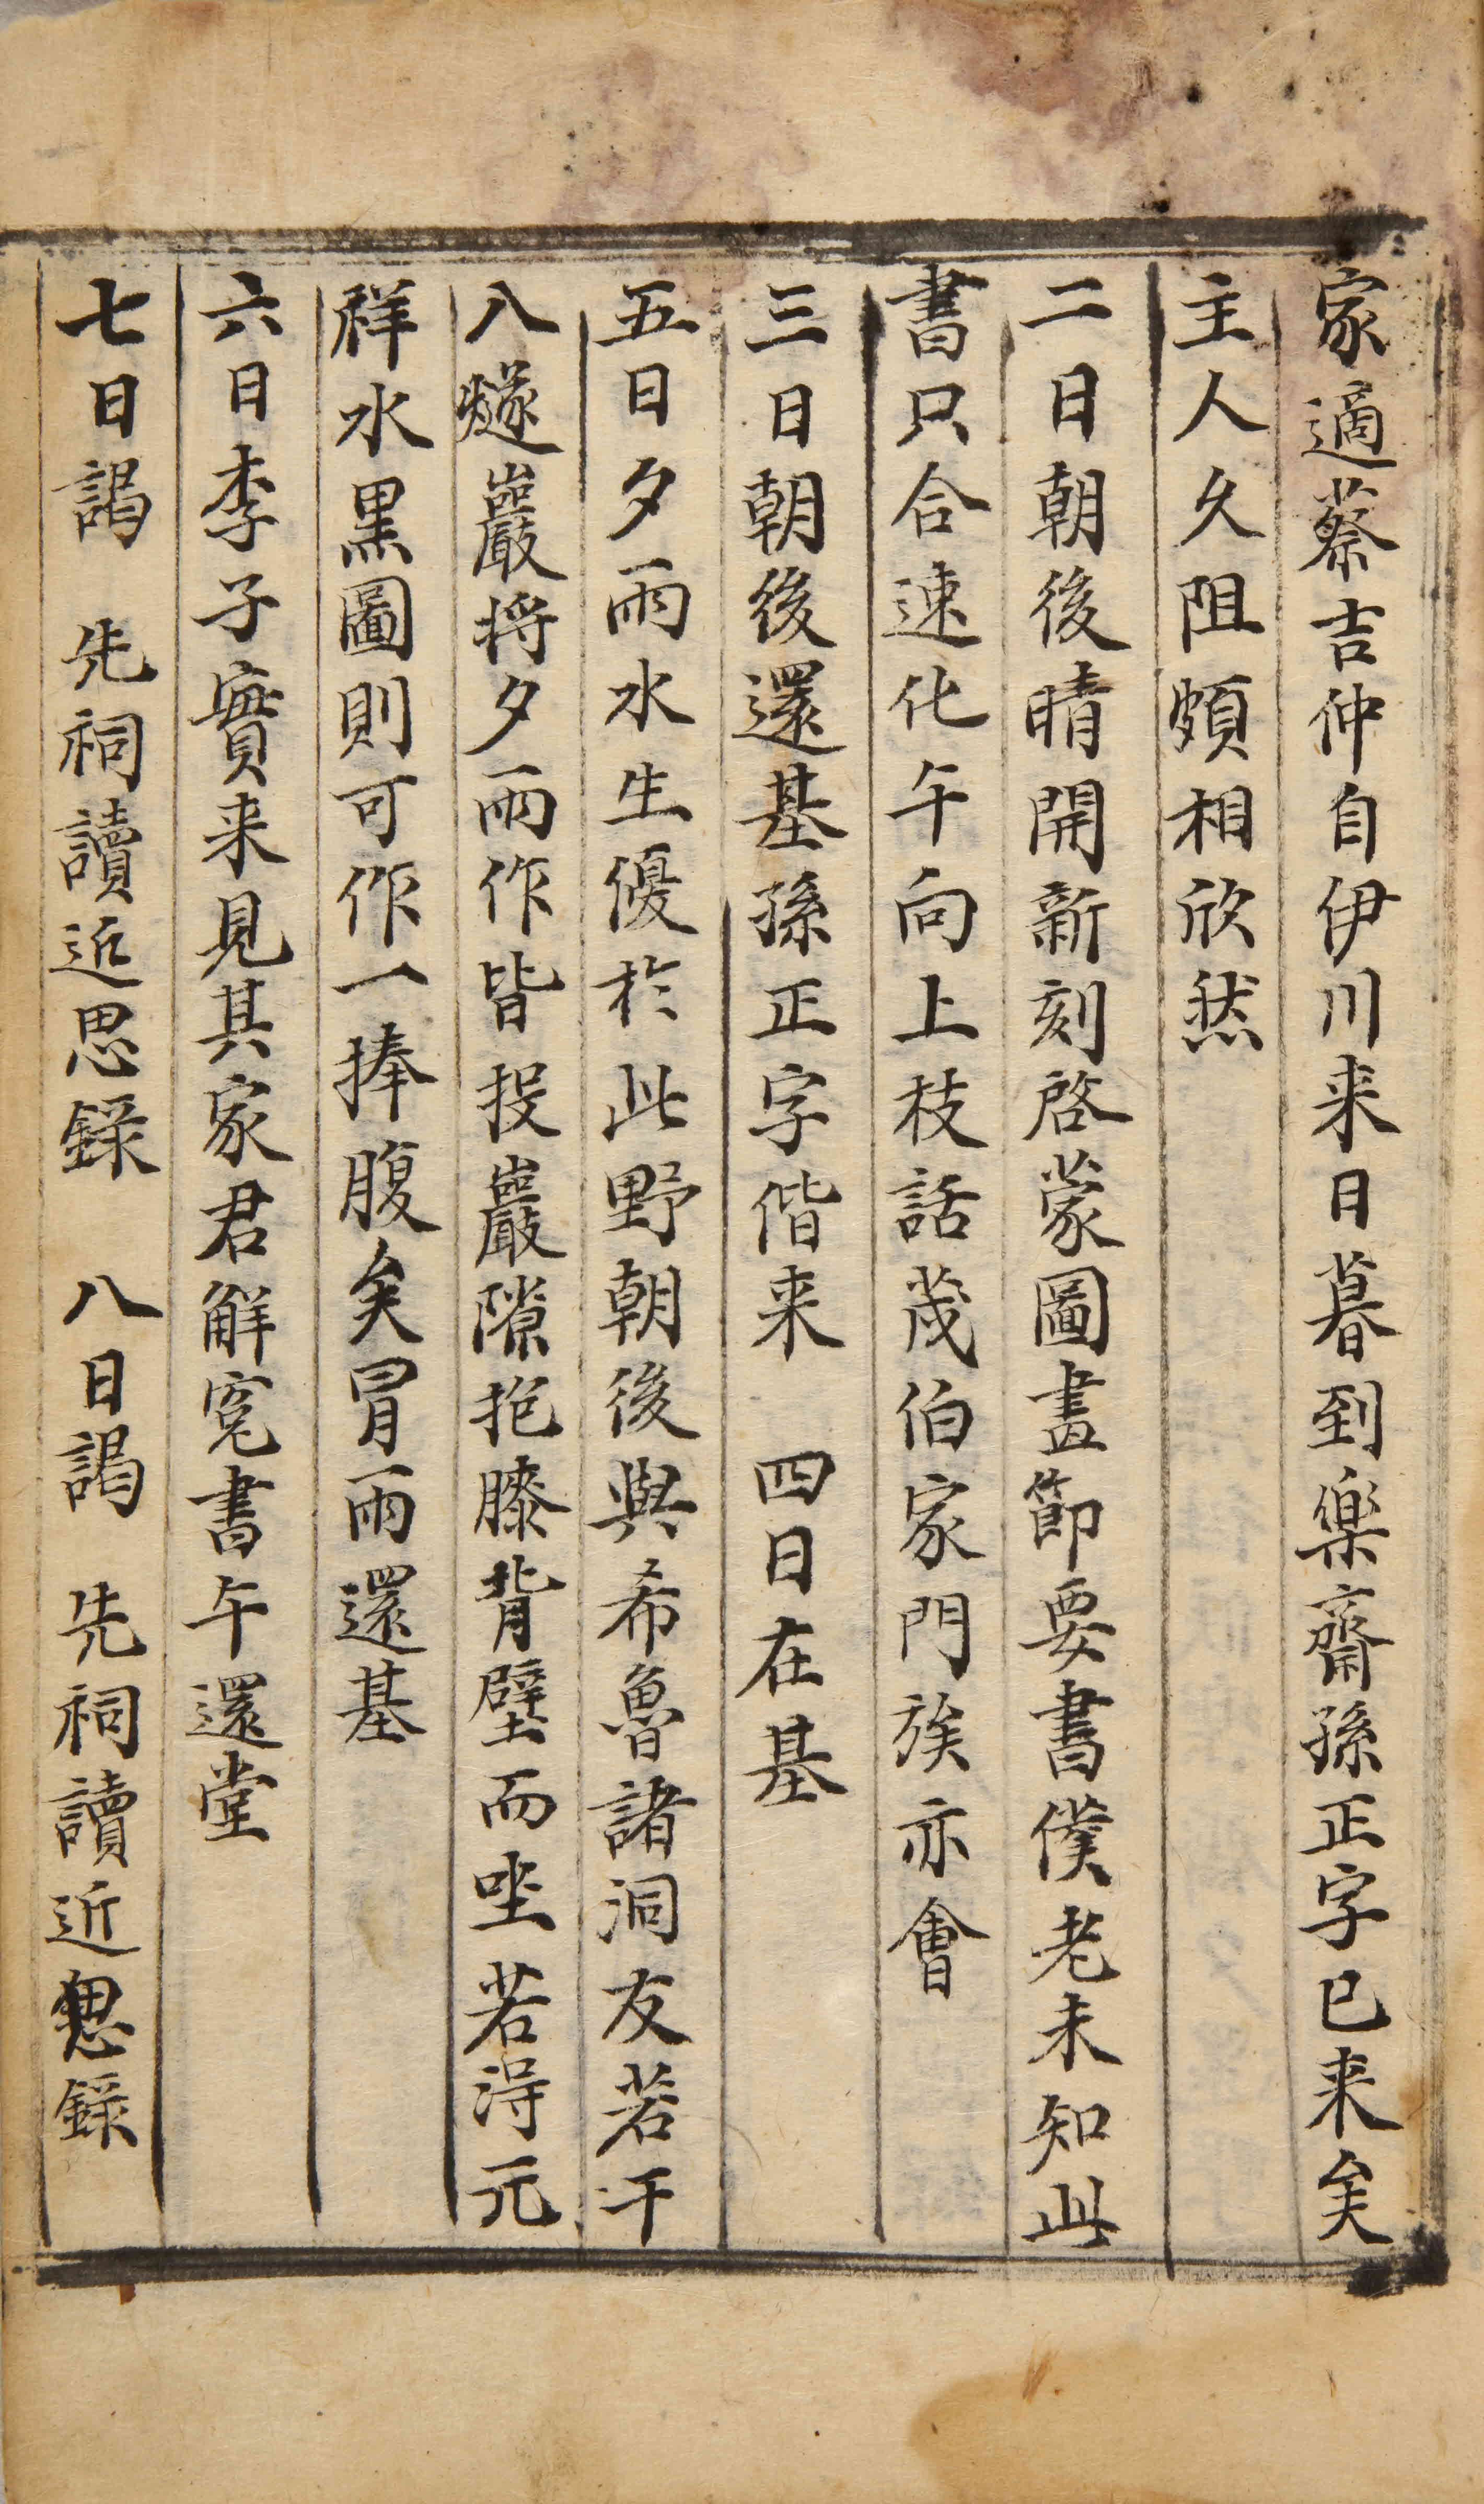 家適蔡吉仲自伊川来日暮到樂齋孫正字已来矣
主人久阻頗相欣然
二日朝後晴開新刻啓蒙圖畫節要書僕老未知此
書只合速化午向上枝話茂伯家門族亦會
三日朝後還基孫正字偕来 四日在基
五日夕雨水生優於此野朝後與希魯諸洞友若干
入燧巖将夕雨作皆投巖隙抱膝背壁而坐若淂元
祥水黒圖則可作一捧腹矣冐雨還基
六日李子實来見其家君觧寃書午還堂
七日謁 先祠讀近思録 八日謁 先祠讀近思録